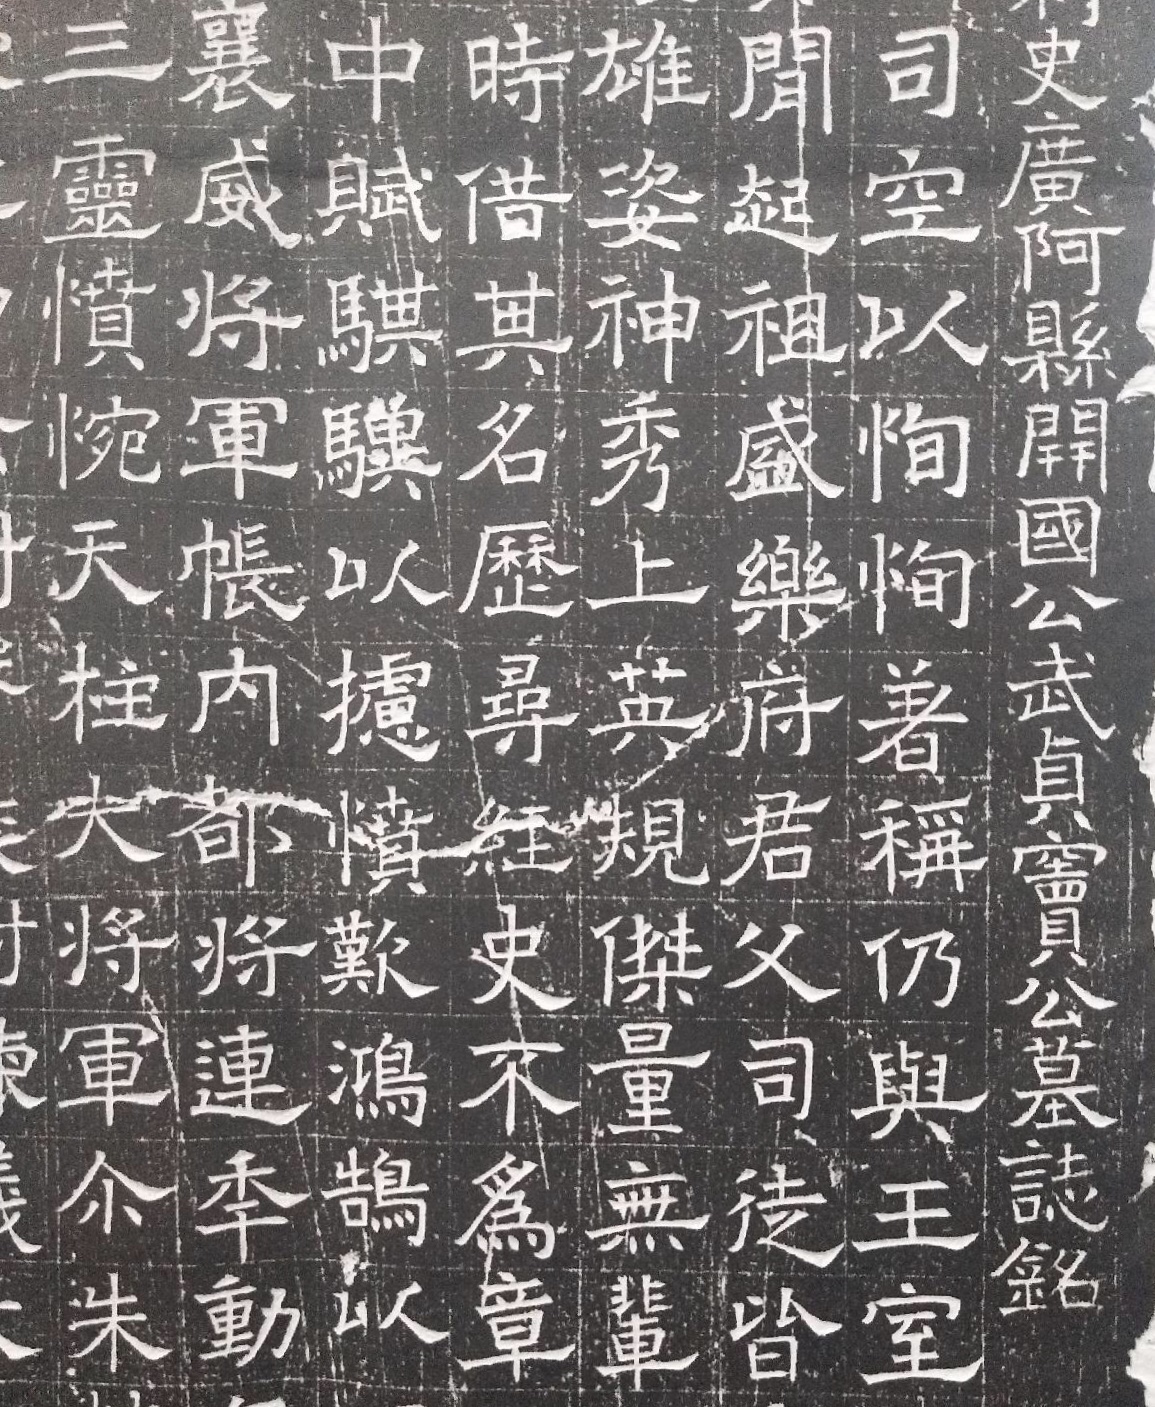 史廣阿縣開國公武貞竇公墓誌銘
司空以恂恂著稱仍與王室
閒起祖盛樂府君父司徒皆
雄姿神秀上英規傑量無輩
時借其名歷尋經史不為章
中賦騏驥以攄憤歎鴻鵠以
襄威將軍帳內都將連年動
三靈憤惋天柱大將軍尒朱